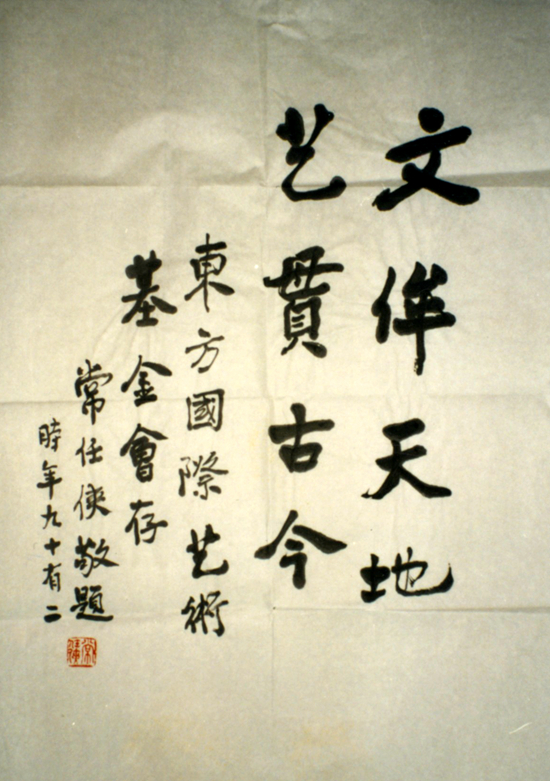 文侔天地
艺贯古今
東方國際艺術
基金會存
常任侠敬題
時年九十有二